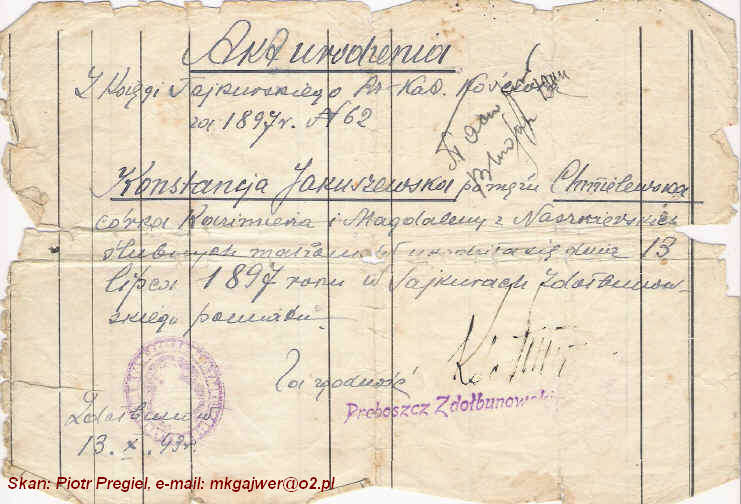 Akt urodzenia
Z Księgi Tajkurskiego Rz-Kat. Kościoła
za 1897r. N 62
Konstancja Jakuszewska po mężu Chmielewska
córka Kazimierza i Magdaleny z
ślubnych małżonków urodziła się dnia 13
lipca 1897 roku w Tajkurach Zdołbunow-
skiego powiatu
Za zgodność
Proboszcz Zdołbunowski
Zdołbunów
13. X. 43r.
Skan: Piotr Pregiel, e-mail: mkgajwer@o2.pl